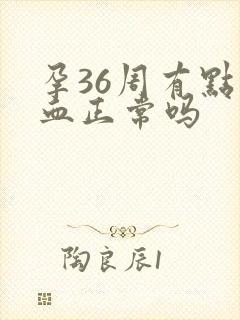 孕36周有點
血正常吗
陶良辰1